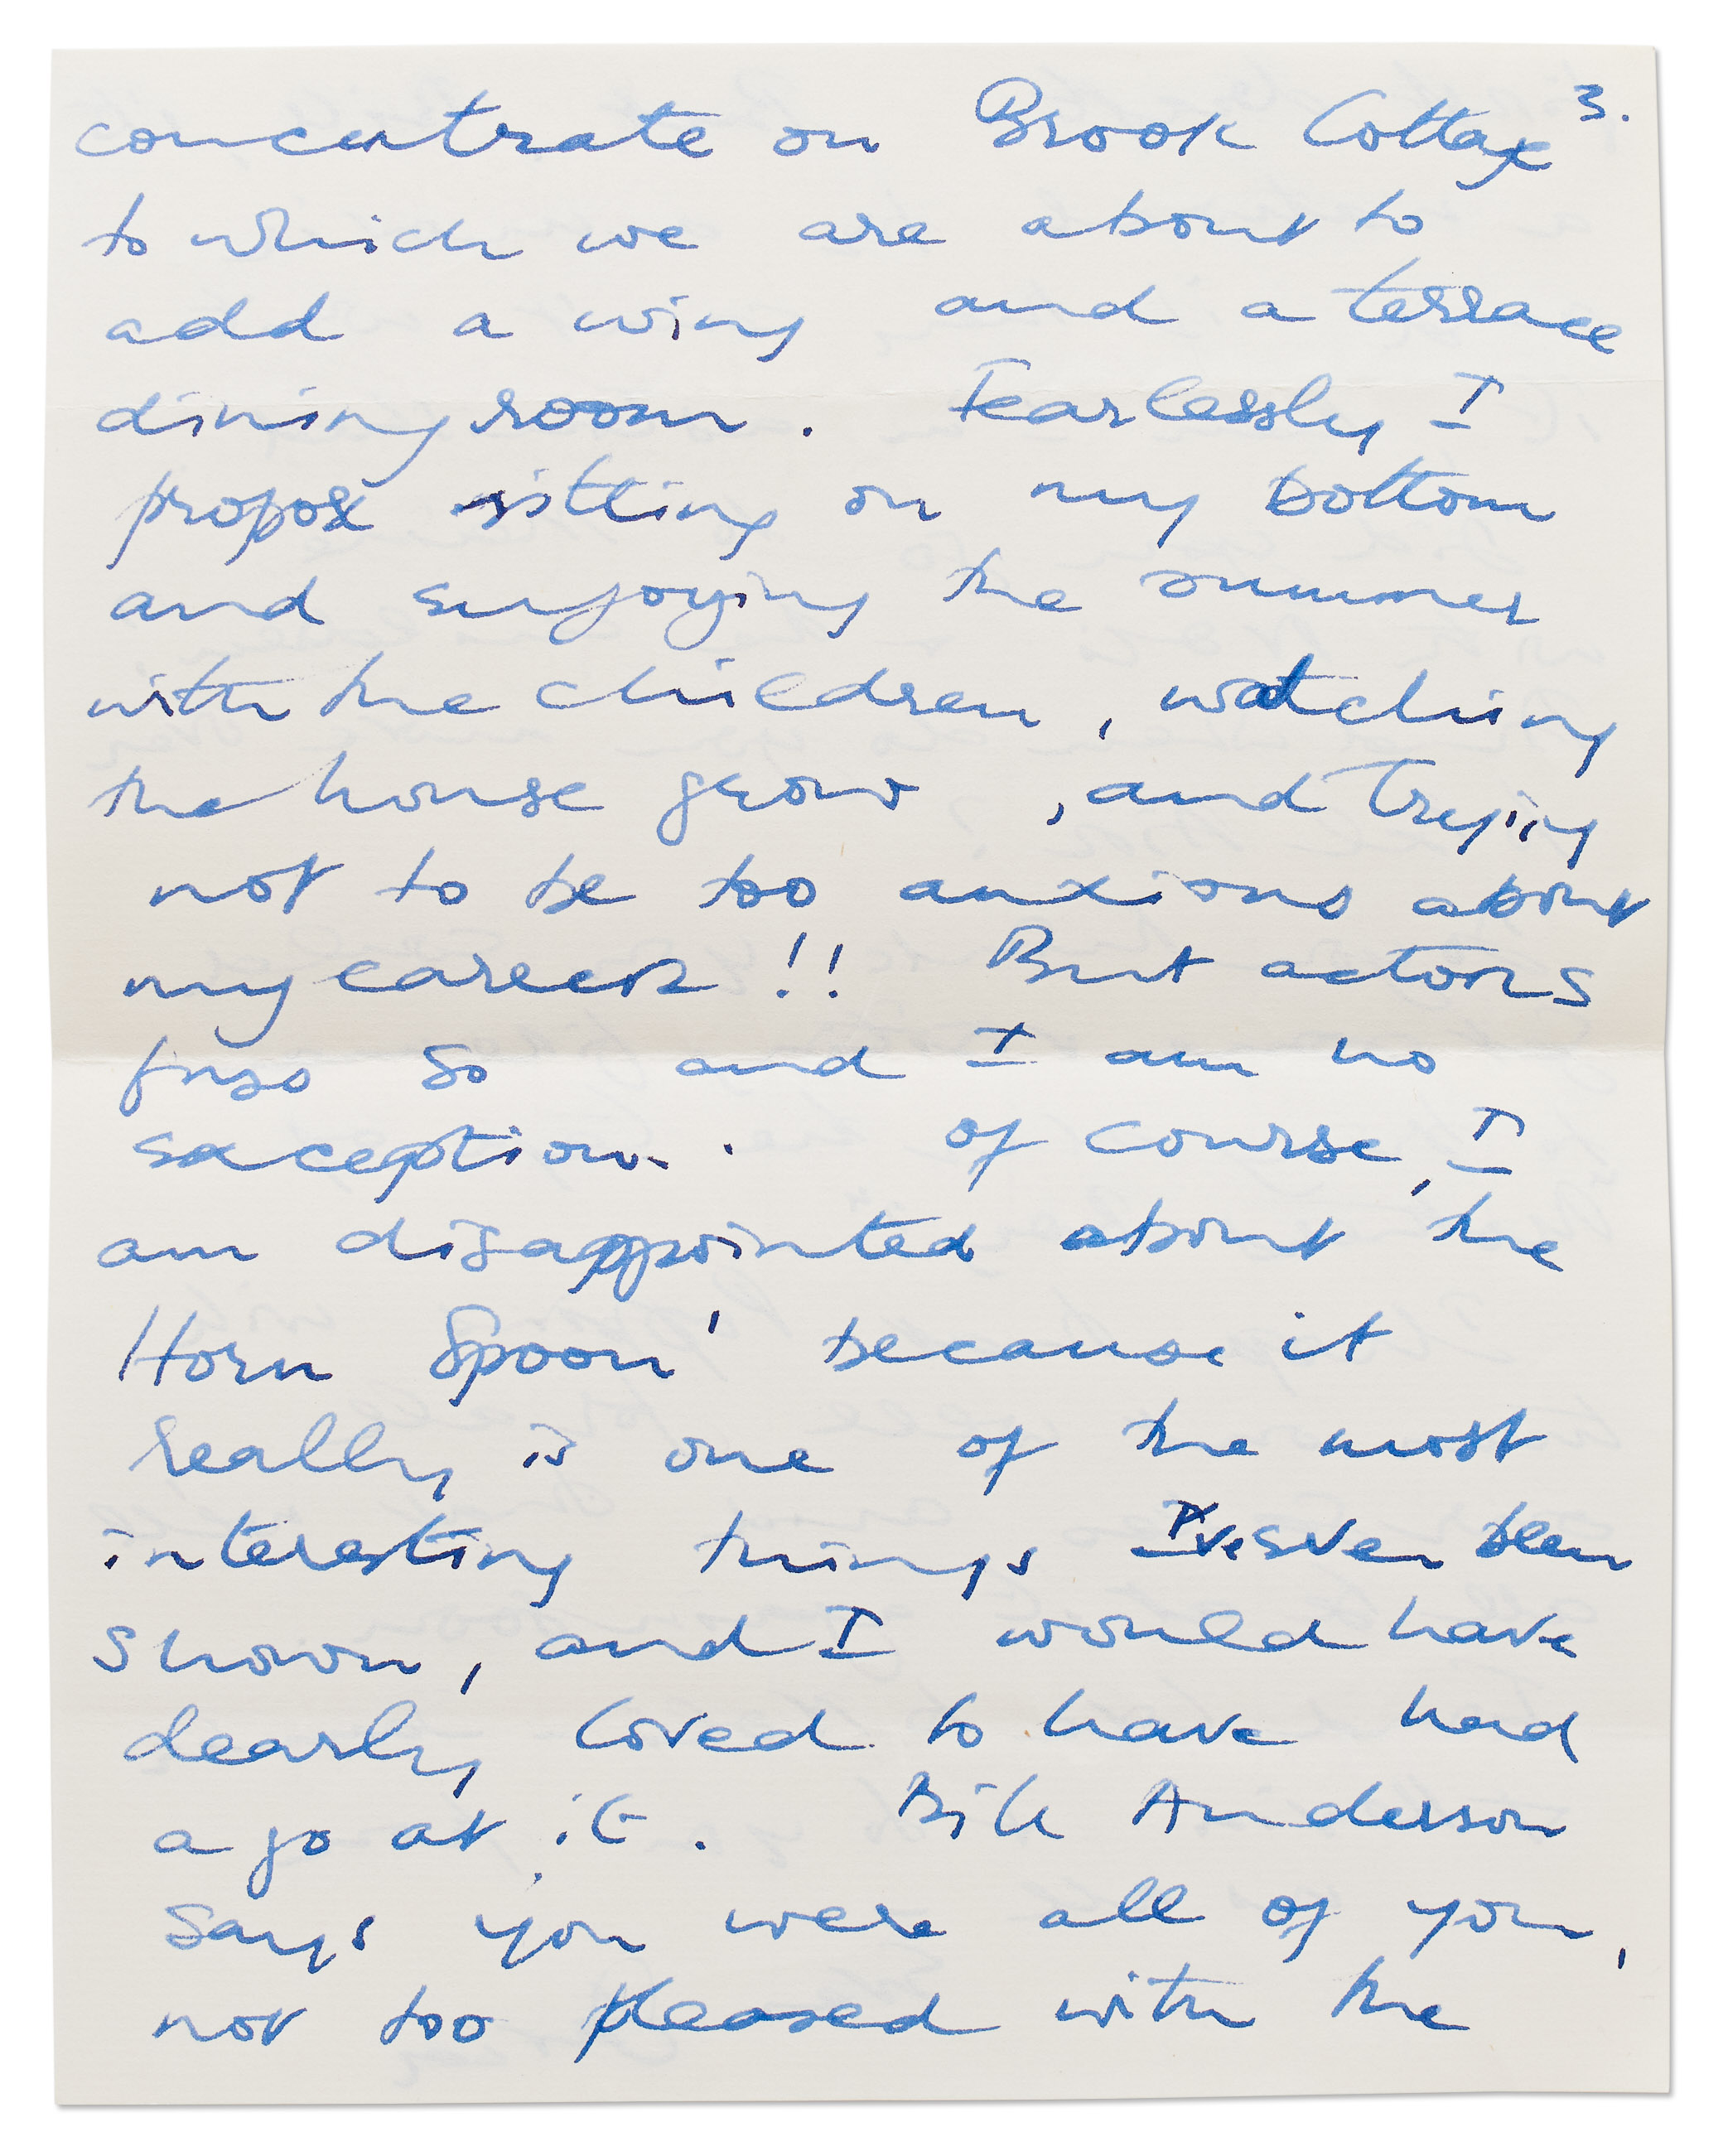 3.
concentrate on Brook Cottage
to which we are about to
add a wing and a terrace
dining room. Fearlessly I
propose sitting on my bottom
and enjoying the summer
with the children, watching
the house grow, and trying
not to be too anxious about
my career!! But actors
fuss so and I am no
exception. Of course, I
am disappointed about the
Horn Spoon' because it
really is one of the most
interesting things I've ever been
shown, and I would have
dearly loved to have had
a go at it. Bill Anderson
says you were all of you,
not too pleased with the